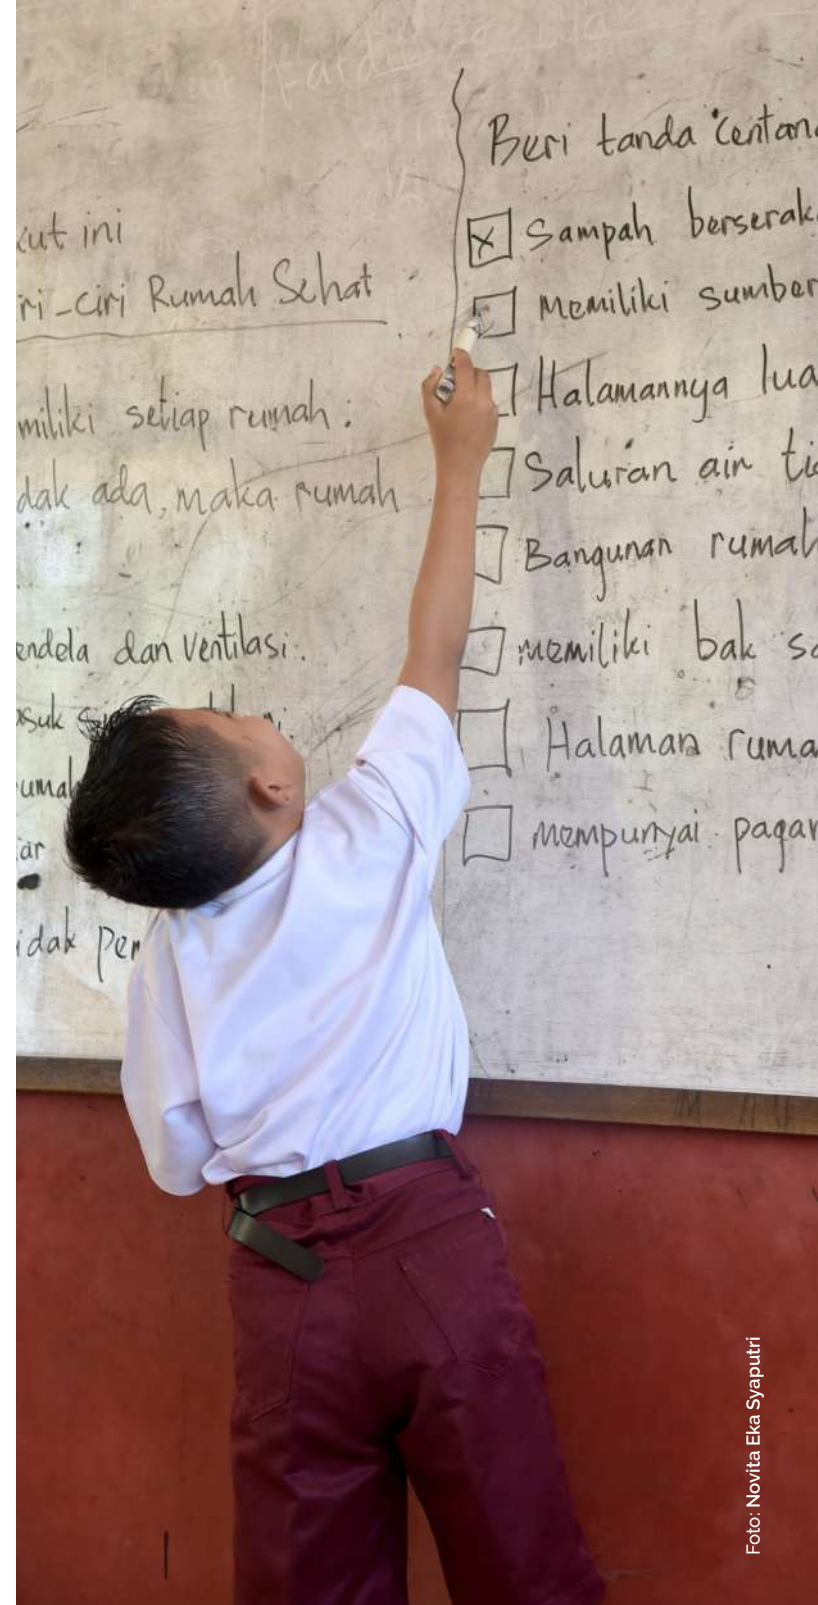 kut ini
ri-ciri Rumah Sehat
miliki setiap rumah :
dak ada, maka rumah
endela dan ventilasi.
asuk
umah
ar
idak per
Beri tanda centan
x Sampah berserak
Memiliki sumber
Halamannya lua
Saluran air ti
Bangunan rumah
memiliki bak sa
Halaman ruma
mempunyai pagar
Foto: Novita Eka Syaputri